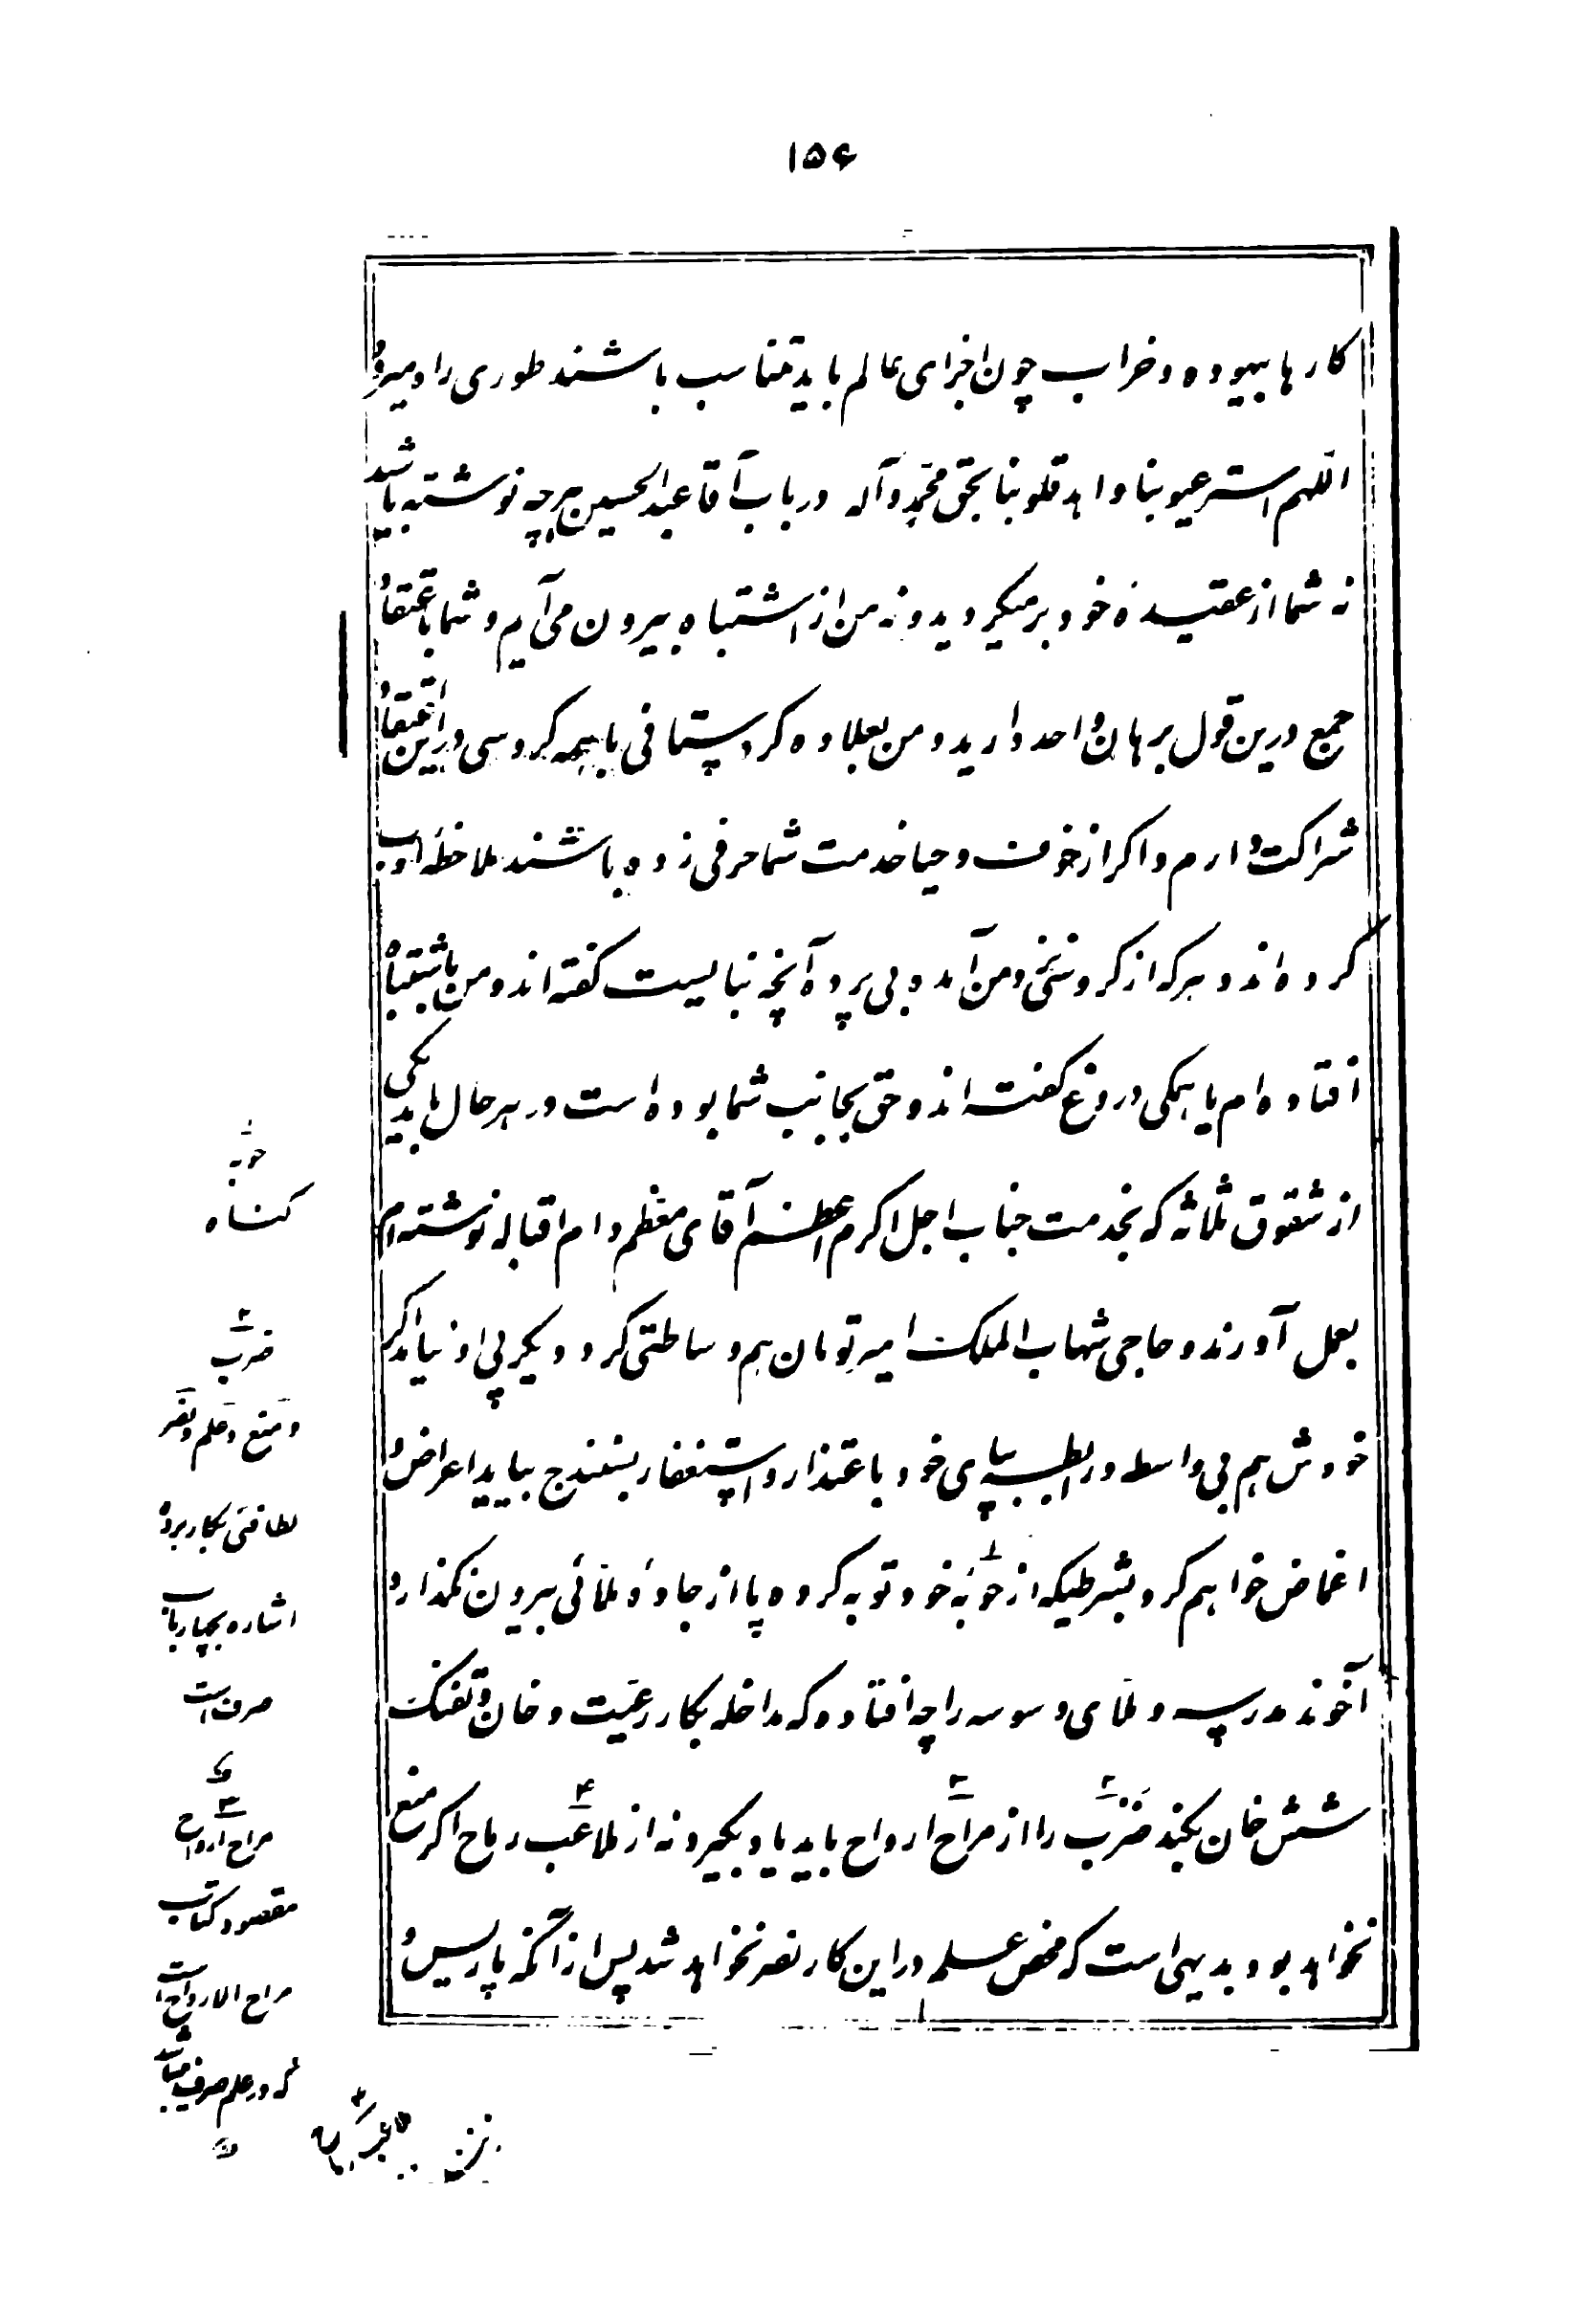 ۱۵۶
کارها بیهوده و خراب چون اجزای عالم باید متناسب باشند طوری راه میرود
اللهم استر عیوبنا و اهد قلوبنا بحق محمد و آله در باب آقا عبدالحسین هرچه نوشته باشد یا
نه شما از عقیده خود برمیگردید و نه من از اشتباه بیرون می‌آیم و شما باعتقاد
جمع درین قول برهان واحد دارید و من بعلاوه کردستانی با همه گروسی در این اعتقاد
شراکت دارم و اگر از خوف و حیا خدمت شما حرفی زده باشند ملاحظه ادب
کرده‌اند و هرکه از گروس نزد من آمده بی پرده آنچه نبایست گفته‌اند و من باشتباه
افتاده‌ام یا همگی دروغ گفته‌اند و حق بجانب شما بوده است در هر حال باید یکی
از شقوق ثلاثه که بخدمت جناب اجل اکرم اعظم آقای معظم دام اقباله نوشته‌ام
بعمل آورند و حاجی شهاب الملک امیر تومان هم وساطتی کرد دیگر پی او نیامد اگر
خودش هم بی واسطه و رابطه بپای خود باعتذار و استغفار بسنندج بیاید اعراض و
اغماض خواهم کرد بشرطیکه از حوبهٔ خود توبه کرده پا از جادهٔ ملائی بیرون نگذارد
آخوند مدرسه و ملای وسوسه را چه افتاده که مداخله بکار رعیت و خان و تفنگ
شش خان بکند ضرب را از مراح ارواح باید یاد بگیرد نه از ملاعب رماح اگر منع
نخواهد بود بدیهی است که محض علم در این کار نصر نخواهد شد پس از آنکه پاریس و
حوبه
گناه
ضرب
و منع و علم و نصر
لطافتی بکار برده
اشاره بچهار باب
صرف است
مراح ارواح
مقصود کتاب
مراح الارواح است
که در علم صرف میباشد